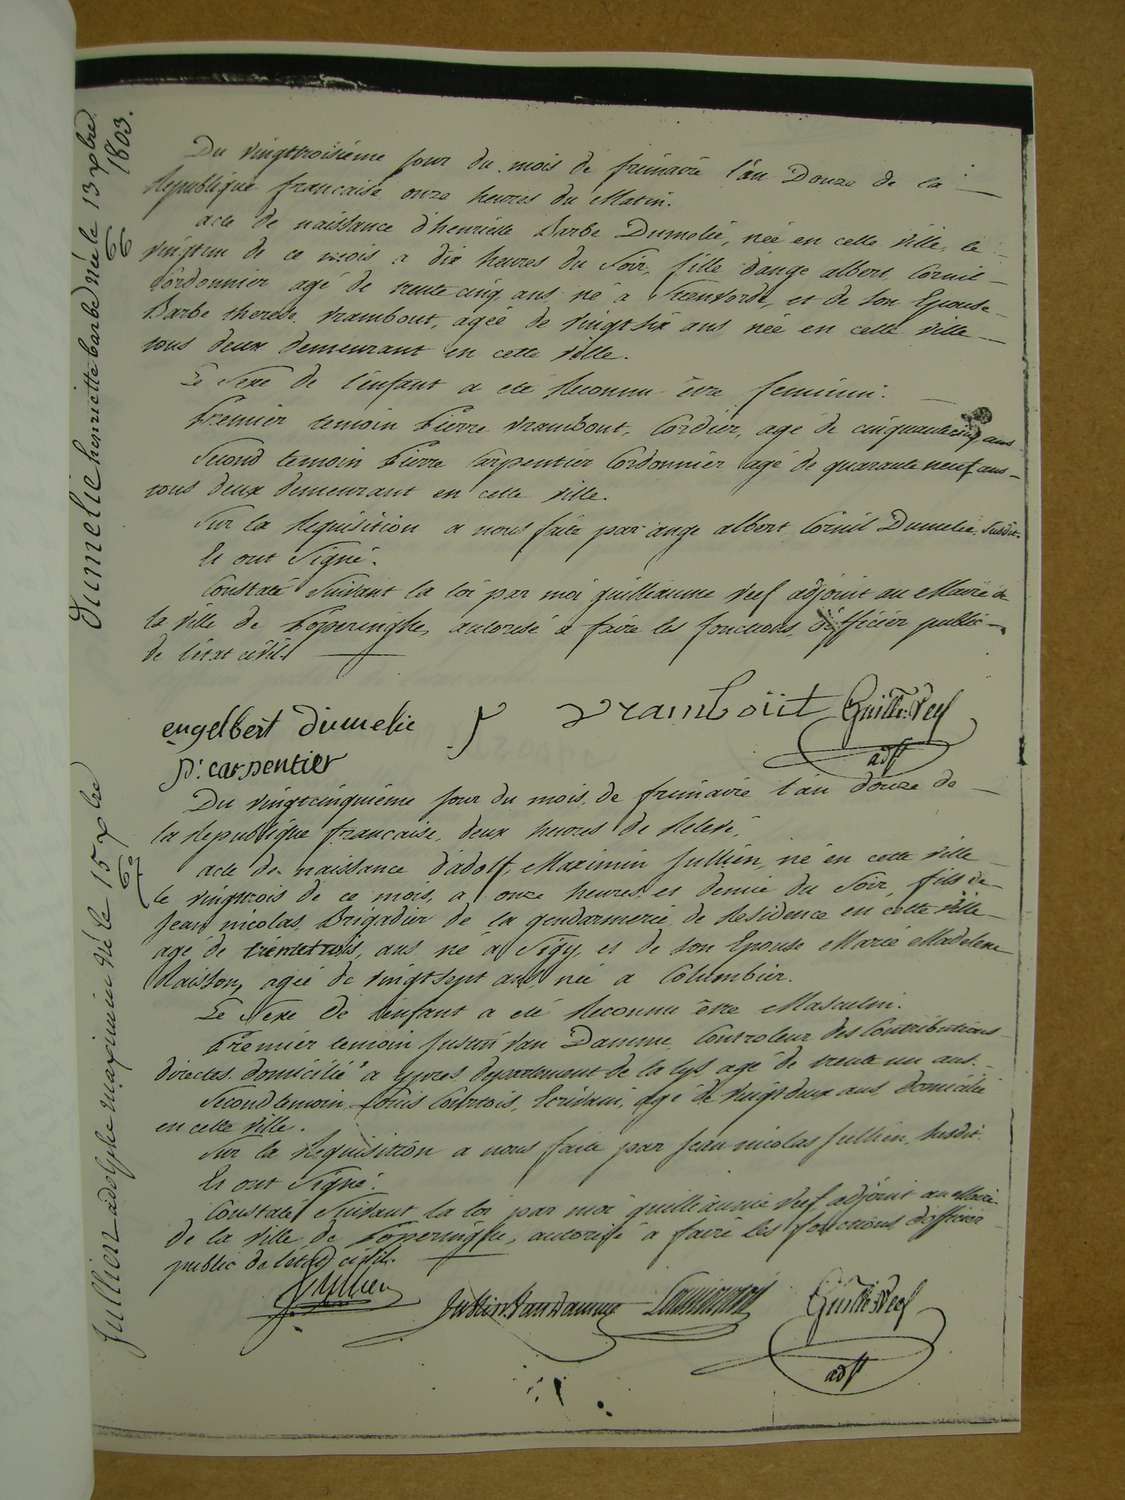 Dumelie henriette barbe née le 13 xbre
1803.
Du vingttroisième jour du mois de frimaire l'an Douze de la
Republique française onze heures du Matin.
acte de naissance d'henriette Barbe Dumelie, née en cette ville, le
vingtun de ce mois a dix heures du Soir, fille d'ange albert Cornil
Cordonnier agé de trente cinq ans né a Steenvorde, et de son Epouse
Barbe therese vrambout, agée de vingt six ans née en cette ville
tous deux demeurant en cette ville.
Le Sexe de l'enfant a eté Reconnu être feminin.
Premier temoin Pierre vrambout, Cordier, agé de cinquantecinq ans
Second temoin Pierre Carpentier Cordonnier agé de quarante neuf ans
tous deux demeurant en cette ville.
Sur la Requisition a nous faite par ange albert Cornil Dumelie, Susdit
Et ont Signé.
Constaté Suivant la loi par moi guilliaume Reef adjoint au Maire de
la ville de Poperinghe, autorisé a faire les fonctions d'officier public
de l'état civil
engelbert dumelie vramboüt Guille. Reef
P: carpentier adjt
Jullien adolphe maximin né le 15 xbre
Du vingtcinquième jour du mois de frimaire l'an douze de
la Republique française, deux heures de Relevé,
acte de naissance d'adolf Maximin Jullien, né en cette ville
le vingttrois de ce mois, a onze heures et demie du Soir, fils de
Jean nicolas Brigadier de la gendarmerie de Residence en cette ville
agé de trentetrois, ans né a Sigy, et de son Epouse Marie Madelene
Raisson, agée de vingtsept ans née a Columbier.
Le Sexe de l'enfant a eté Reconnu être Masculin.
Premier temoin Justin Van Damme, Controleur des Contributions
directes domicilié a ypres, departement de la lys agé de trente un ans.
Second temoin Louis Courtois, Ecrivain, agé de vingtdeux ans domicilié
en cette ville.
Sur la Requisition a nous faite par Jean nicolas Jullien, Susdit.
Et ont Signé.
Constaté Suivant la loi par moi guilliaume Reef adjoint au Maire
de la ville de Poperinghe, autorisé a faire les fonctions d'officier
public de l'état civil.
Jullien Justin Van Damme Guille. Reef
adjt